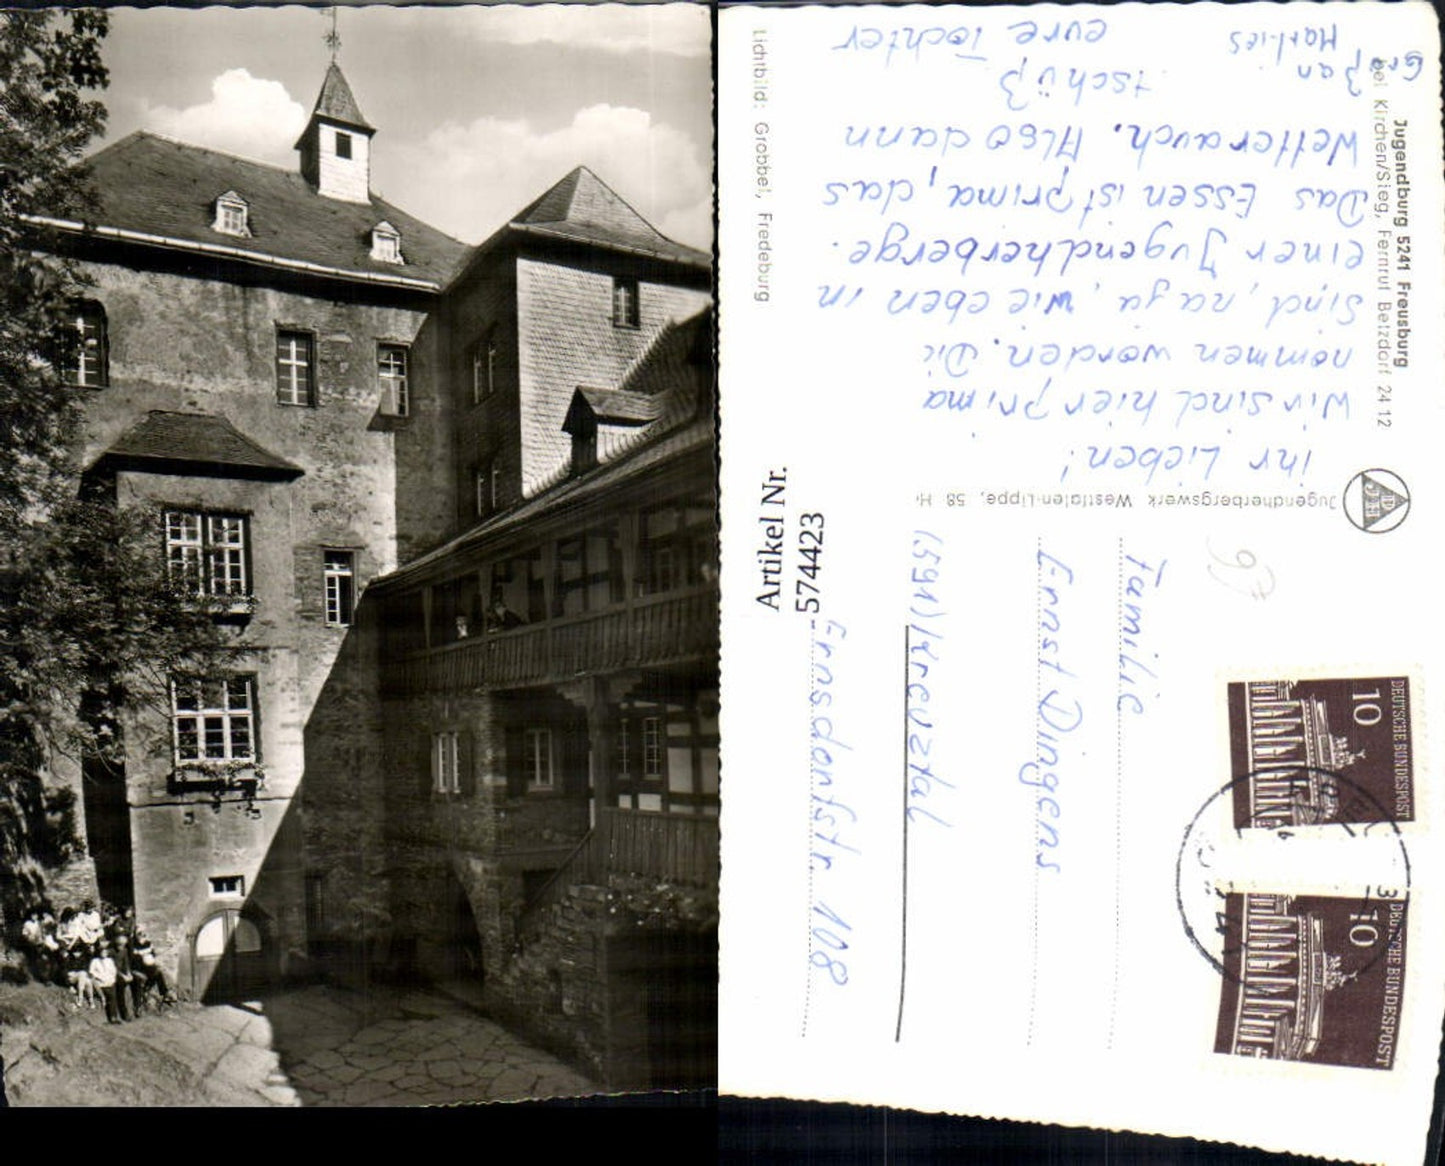 Jugendburg 5241 Freusburg
bei Kirchen/Sieg, Fernruf Betzdorf 24 12
Lichtbild: Grobbel, Fredeburg
Jugendherbergswerk Westfalen-Lippe, 58 H
ihr Lieben!
Wir sind hier prima
nommen worden. Die
Sind, na ja, wie eben in
einer Jugendherberge.
Das Essen ist prima, das
Wetter auch. Also dann
tschüß
eure Tochter
Marlies
Gruß an
Familie
Ernst Dingens
(591) Kreuztal
Ernsdorfstr. 108
Artikel Nr.
574423
DEUTSCHE BUNDESPOST
10
DEUTSCHE BUNDESPOST
10